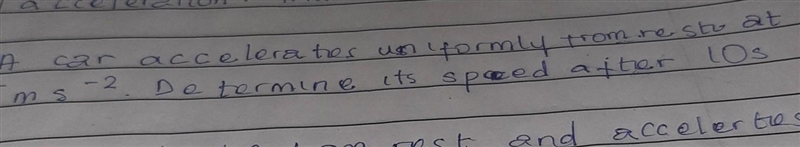 acceleration
A car accelerates uniformly from rest at
ms⁻². Determine its speed after 10s
rest and accelerties